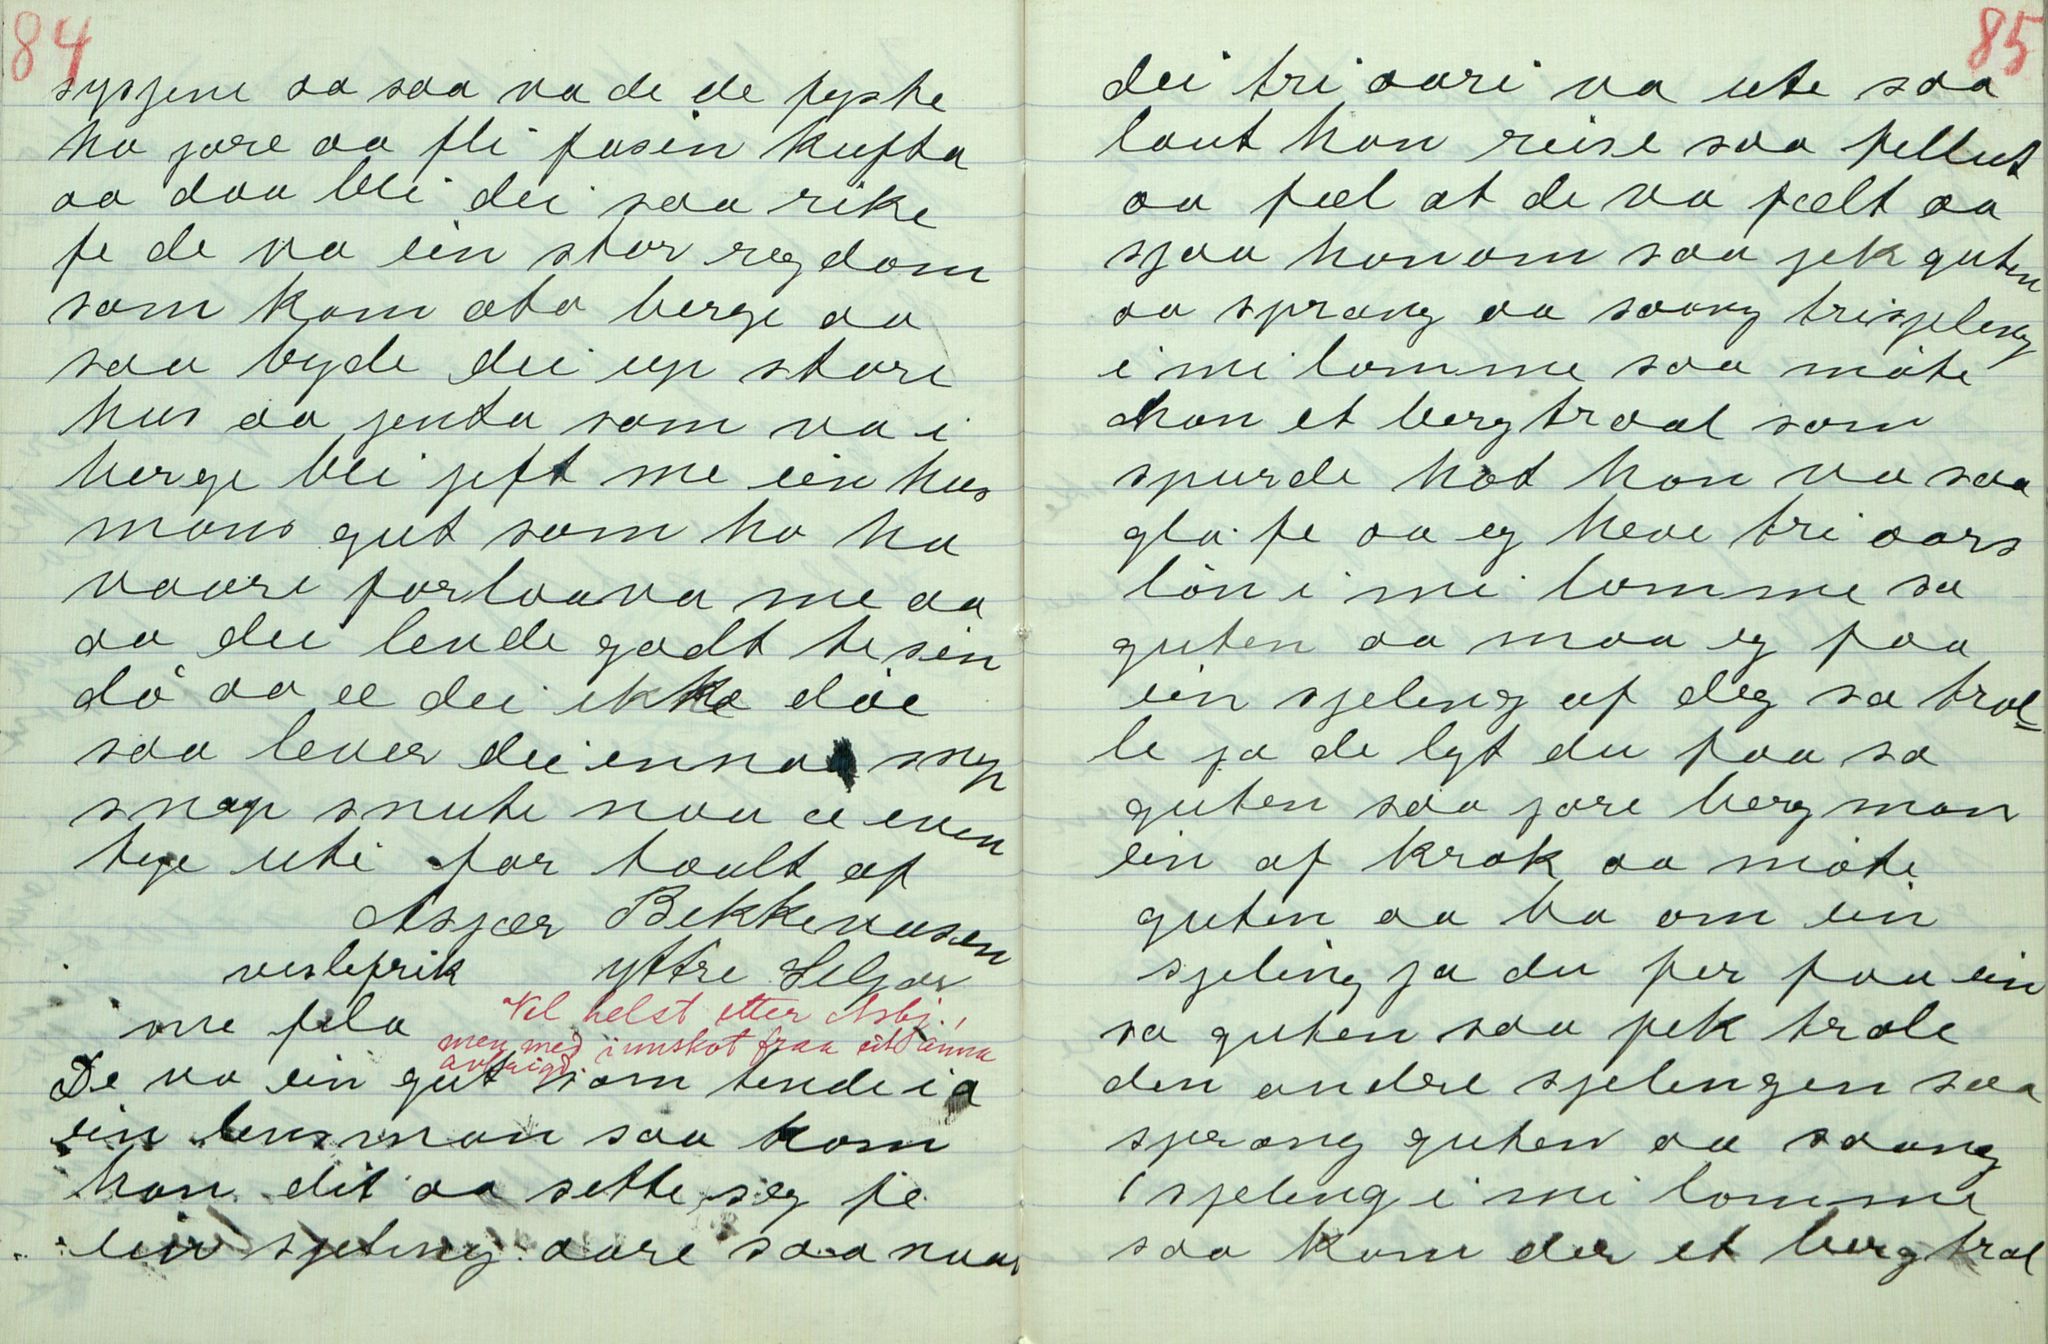 84
sysjene aa saa va de de fyste
ho jore aa fli fasin kufta
aa daa bli dei saa rike
fe de va ein stor regdom
som kom ata berge aa
saa bygde dei up store
hus aa jenta som va i
berge blei jift me ein hus
mans gut som ho ha
vaare forlaava me aa
aa dei levde godt te sin
dö aa ee dei ikke döe
saa lever dei ennaa snip
snap snute naa ee even
tye uti for taalt af
Asjær Bekkevasen
yttre Seljor
veslefrik
me fela
Vel helst etter Asbj.,
men med innskot fraa eit anna
De va ein gut som tende i a
ein lensman saa kom
han dit aa sette seg fe
ein sjeling aare saa naar
85
dei tri aari va ute saa
laut han reise saa fellut
aa fæl at de va fælt aa
sjaa honom saa jek guten
aa sprang aa saang trisjeling
i mi lomme saa möte
han et bergtraal som
spurde hot han va saa
gla fe aa eg heve tri aars
lön i mi lomme sa
guten aa maa eg faa
ein sjeling af deg sa trol=
le ja de lyt du faa sa
guten saa jore bergman
ein af krok aa möte
guten aa ba om ein
sjeling ja du fer faa ein
sa guten saa fek trole
den andre sjelingen saa
sprang guten aa saang
1 sjeling i mi lomme
saa kom der et bergtrol